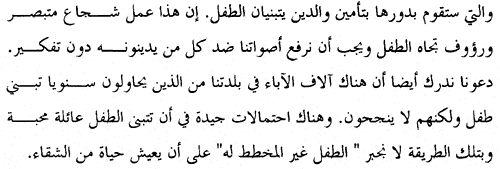 والتي ستقوم بدورها بتأمين والدين يتبنيان الطفل. إن هذا عمل شجاع متبصر
ورؤوف تجاه الطفل ويجب أن نرفع أصواتنا ضد كل من يدينونه دون تفكير.
دعونا ندرك أيضا أن هناك آلاف الآباء في بلدتنا من الذين يحاولون سنويا تبني
طفل ولكنهم لا ينجحون. وهناك احتمالات جيدة في أن تتبنى الطفل عائلة محبة
وبتلك الطريقة لا نجبر " الطفل غير المخطط له" على أن يعيش حياة من الشقاء.